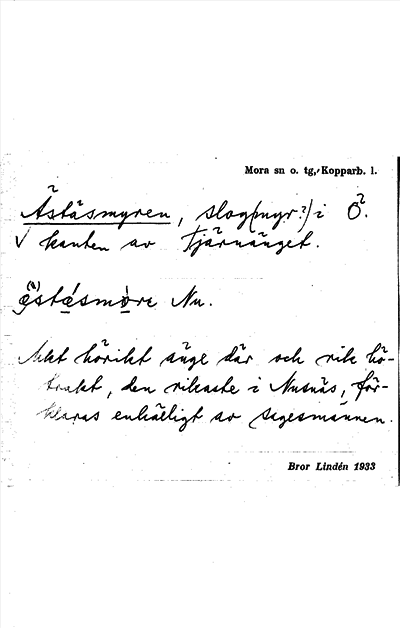 Mora sn o. tg, Kopparb. l.
Ästäsmyren, slog(myr?) i Ö.
V kanten av Tjärnänget.
Nu.
Mkt hörikt änge där och rik hö-
trakt, den rikaste i Nusnäs, för-
klaras enhälligt av sagesmännen.
Bror Lindén 1933